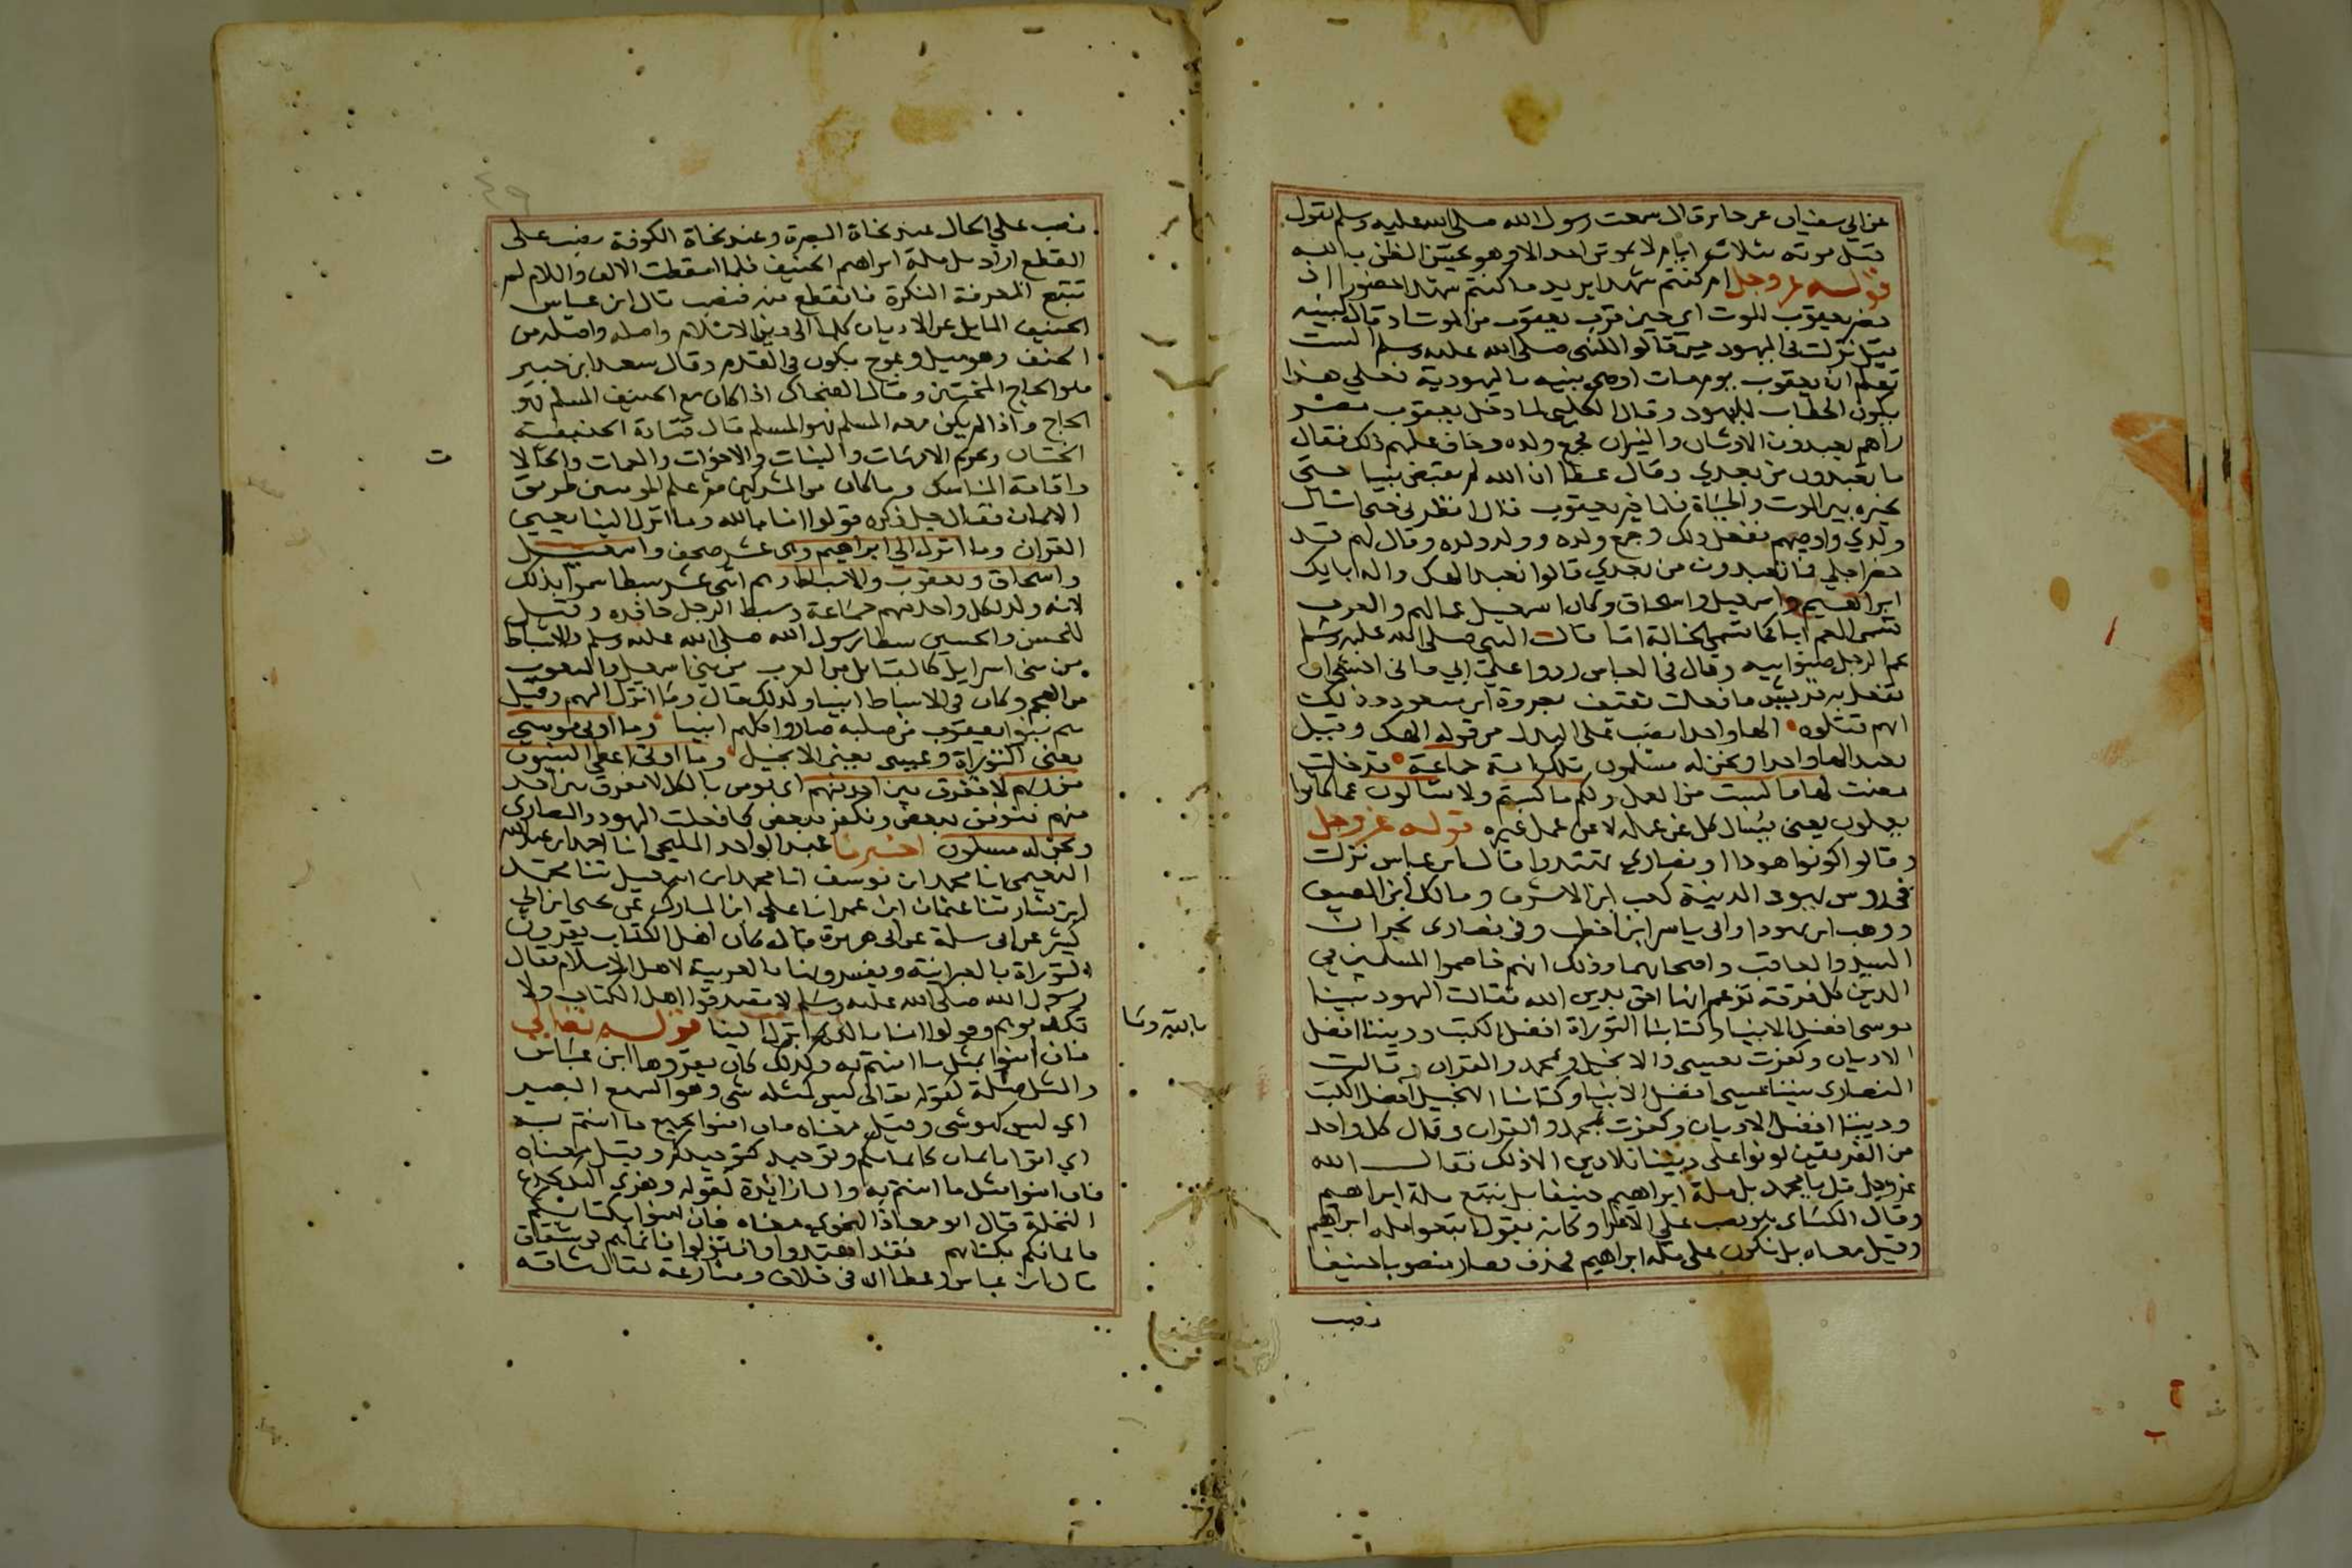 عن ابي سفيان عن جابر قال سمعت رسول الله صلى الله عليه وسلم يقول
قبل موته بثلاثة ايام لا يموتن احد الا وهو يحسن الظن بالله
قوله عز وجل ام كنتم شهدا يريد ما كنتم شهدا حضورا اذ
حضر يعقوب الموت اي حين قرب يعقوب من الموت اذ قال لبنيه
قيل نزلت في اليهود حين قالوا للنبي صلى الله عليه وسلم الست
تعلم ان يعقوب يوم مات اوصى بنيه باليهودية فعلى هذا
يكون الخطاب لليهود وقال الكلبي لما دخل يعقوب مصر
راهم يعبدون الاوثان والنيران فجمع ولده وخاف عليهم ذلك فقال
ما تعبدون من بعدي وقال عطا ان الله لم يقبض نبيا حتى
يخيره بين الموت والحياة فلما خير يعقوب قال انظرني حتى اسال
ولدي واوصيهم ففعل ذلك وجمع ولده وولد ولده وقال لهم قد
حضر اجلي فما تعبدون من بعدي قالوا نعبد الهك واله ابايك
ابراهيم واسمعيل واسحاق وكان اسمعيل عما لهم والعرب
تسمي العم ابا كما تسمي الخالة اما قال النبي صلى الله عليه وسلم
عم الرجل صنو ابيه وقال في العباس ردوا علي ابي فاني اخشى ان
تفعل به قريش ما فعلت ثقيف بعروة ابن مسعود وذلك
انهم قتلوه الها واحدا نصب على البدل من قوله الهك وقيل
نعبد الها واحدا ونحن له مسلمون تلك امة جماعة قد خلت
مضت لها ما كسبت من العمل ولكم ما كسبتم ولا تسالون عما كانوا
يعملون يعني يسال كل عن عمله لا عن عمل غيره قوله عز وجل
وقالوا كونوا هودا او نصارى تهتدوا قال ابن عباس نزلت
في روس يهود المدينة كعب ابن الاشرف ومالك ابن الصيف
ووهب ابن يهودا وابي ياسر ابن اخطب وفي نصارى نجران
السيد والعاقب واصحابهما وذلك انهم خاصموا المسلمين في
الدين كل فرقة تزعم انها احق بدين الله فقالت اليهود نبينا
موسى افضل الانبيا وكتابنا التوراة افضل الكتب وديننا افضل
الاديان وكفرت بعيسى والانجيل وبمحمد والقران وقالت
النصارى نبينا عيسى افضل الانبيا وكتابنا الانجيل افضل الكتب
وديننا افضل الاديان وكفرت بمحمد والقران وقال كل واحد
من الفريقين كونوا على ديننا فلا دين الا ذلك فقال الله
عز وجل قل يا محمد بل ملة ابراهيم حنيفا بل نتبع ملة ابراهيم
وقال الكساي هو نصب على الاغرا وكانه يقول اتبعوا ملة ابراهيم
وقيل معناه بل نكون على ملة ابراهيم فحذف فصار منصوبا حنيفا
نصب
نصب على الحال عند نحاة البصرة وعند نحاة الكوفة نصب على
القطع اراد بل ملة ابراهيم الحنيف فلما اسقطت الالف واللام لم
تتبع المعرفة النكرة فانقطع منه فنصب قال ابن عباس
الحنيف المايل عن الاديان كلها الى دين الاسلام واصله من
الحنف وهو ميل وعوج يكون في القدم وقال سعيد ابن جبير
هو الحاج المختتن وقال الضحاك اذا كان مع الحنيف المسلم فهو
الحاج واذا لم يكن معه المسلم فهو المسلم قال قتادة الحنيفية
الختان وتحريم الامهات والبنات والاخوات والعمات والخالا
ت
واقامة المناسك وما كان من المشركين ثم علم المومنين طريق
الايمان فقال جل ذكره قولوا امنا بالله وما انزل الينا يعني
القران وما انزل الى ابراهيم وهي عشر صحف واسمعيل
واسحاق ويعقوب والاسباط وهم اثنى عشر سبطا سموا بذلك
لانه ولد لكل واحد منهم جماعة وسبط الرجل حافده وقيل
للحسن والحسين سبطا رسول الله صلى الله عليه وسلم والاسباط
من بني اسرايل كالقبايل من العرب من بني اسمعيل والشعوب
من العجم وكان في الاسباط انبيا ولذلك قال وما انزل اليهم وقيل
هم بنوا يعقوب من صلبه صاروا كلهم انبيا وما اوتي موسى
يعني التوراة وعيسى يعني الانجيل وما اوتي اعطي النبيون
من ربهم لا نفرق بين احد منهم اي نومن بالكل لا نفرق بين احد
منهم فنومن ببعض ونكفر ببعض كما فعلت اليهود والنصارى
ونحن له مسلمون اخبرنا عبد الواحد المليحي انا احمد ابن عبد الله
النعيمي انا محمد ابن يوسف انا محمد ابن اسمعيل ثنا محمد
ابن بشار ثنا عثمان ابن عمر انا علي ابن المبارك عن يحيى ابن ابي
كثير عن ابي سلمة عن ابي هريرة قال كان اهل الكتاب يقرون
التوراة بالعبرانية ويفسرونها بالعربية لاهل الاسلام فقال
رسول الله صلى الله عليه وسلم لا تصدقوا اهل الكتاب ولا
تكذبوهم وقولوا امنا بالذي انزل الينا قوله تعالى
بالله وما
فان امنوا بمثل ما امنتم به وكذلك كان يقروها ابن عباس
والمثل صلة كقوله تعالى ليس كمثله شي وهو السميع البصير
اي ليس كهو شي وقيل معناه فان امنوا بجميع ما امنتم به
اي اتوا بايمان كايمانكم وتوحيد كتوحيدكم وقيل معناه
فان امنوا مثل ما امنتم به والبا زايدة كقوله وهزي اليك بجذع
النخلة قال ابو معاذ النحوي معناه فان امنوا بكتابكم
كايمانكم بكتابهم فقد اهتدوا وان تولوا فانما هم في شقاق
قال ابن عباس وعطا اي في خلاف ومنازعة يقال شاقه